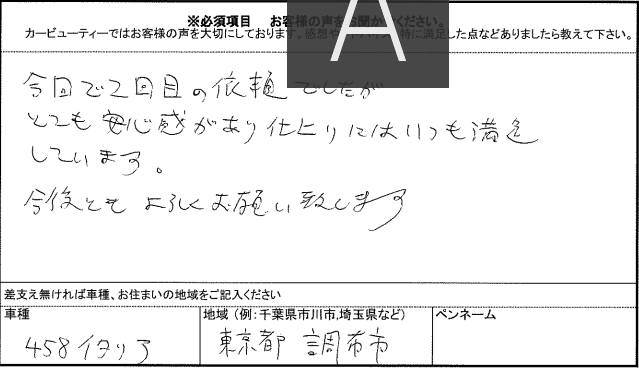 ※必須項目 お客様の声をお聞かせください。
カービューティーではお客様の声を大切にしております。感想や 特に満足した点などありましたら教えて下さい。
A
今回で2回目の依頼でしたが
とても安心感があり仕上りにはいつも満足
しています。
今後ともよろしくお願い致します
差支え無ければ車種、お住まいの地域をご記入ください
車種 地域 (例:千葉県市川市,埼玉県など) ペンネーム
458イタリア 東京都 調布市